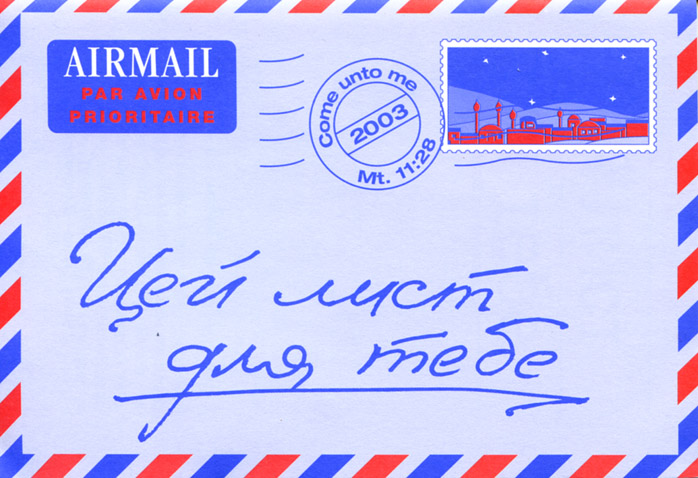 AIRMAIL
PAR AVION
PRIORITAIRE
Come unto me
2003
Mt. 11:28
Цей лист
для тебе